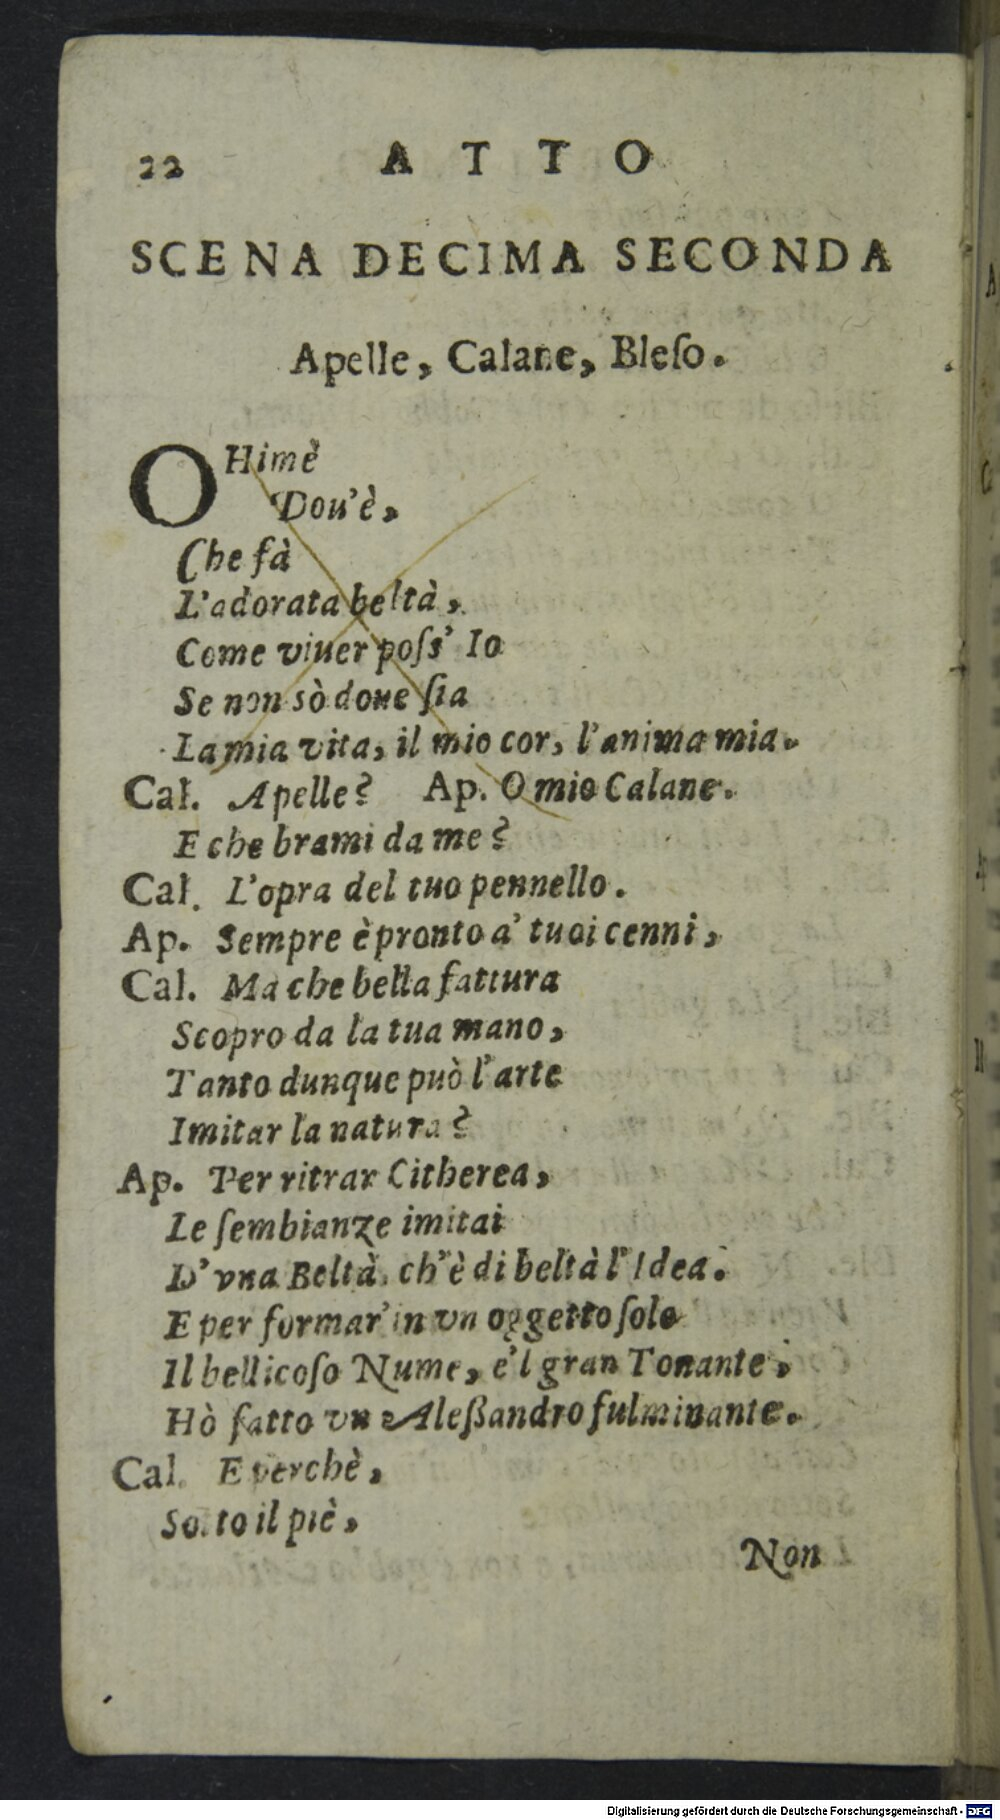 22 ATTO
SCENA DECIMA SECONDA
Apelle, Calane, Bleſo.
OHimè
Dou'è,
Che fà
L'adorata beltà,
Come viuer poſs' Io
Se non sò doue ſia
La mia vita, il mio cor, l'anima mia.
Cal. Apelle? Ap. O mio Calane.
E che brami da me?
Cal. L'opra del tuo pennello.
Ap. Sempre è pronto a' tuoi cenni,
Cal. Ma che bella fattura
Scopro da la tua mano,
Tanto dunque può l'arte
Imitar la natura?
Ap. Per ritrar Citherea,
Le ſembianze imitai
D'vna Beltà, ch'è di beltà l'Idea.
E per formar' in vn oggetto ſolo
Il bellicoſo Nume, e'l gran Tonante,
Hò fatto vn Aleßandro fulminante.
Cal. E perchè,
Sotto il piè,
Non
Digitalisierung gefördert durch die Deutsche Forschungsgemeinschaft - DFG